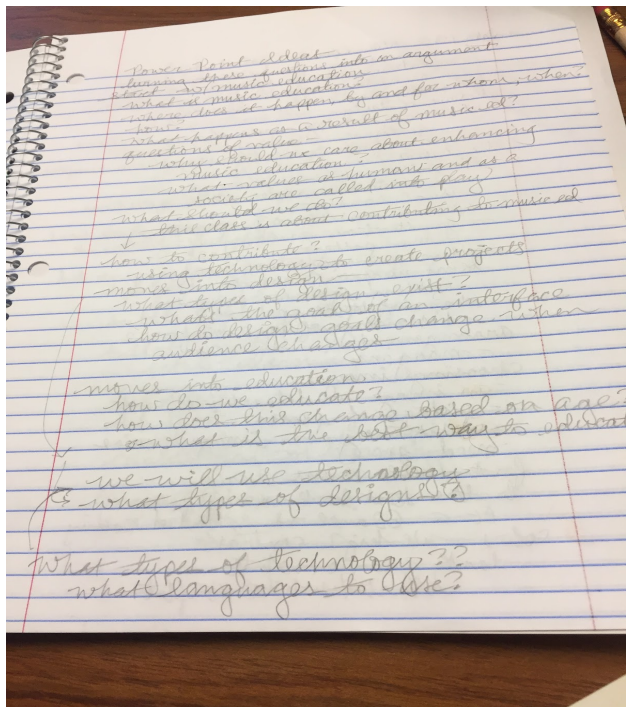 Power Point Ideas
turning these questions into an argument
start w/music education
what is music education?
where does it happen, by and for whom, when?
how?
what happens as a result of music ed?
questions of value
why should we care about enhancing
music education?
what values as humans and as a
society are called into play
what should we do?
this class is about contributing to music ed
↓
how to contribute?
using technology to create projects
moves into design
what types of design exist?
whats the goal of an interface
how do design goals change when
audience changes
moves into education
how do we educate?
how does this change based on age?
what is the best way to educat
we will use technology
what types of designs?
what types of technology??
what languages to use?